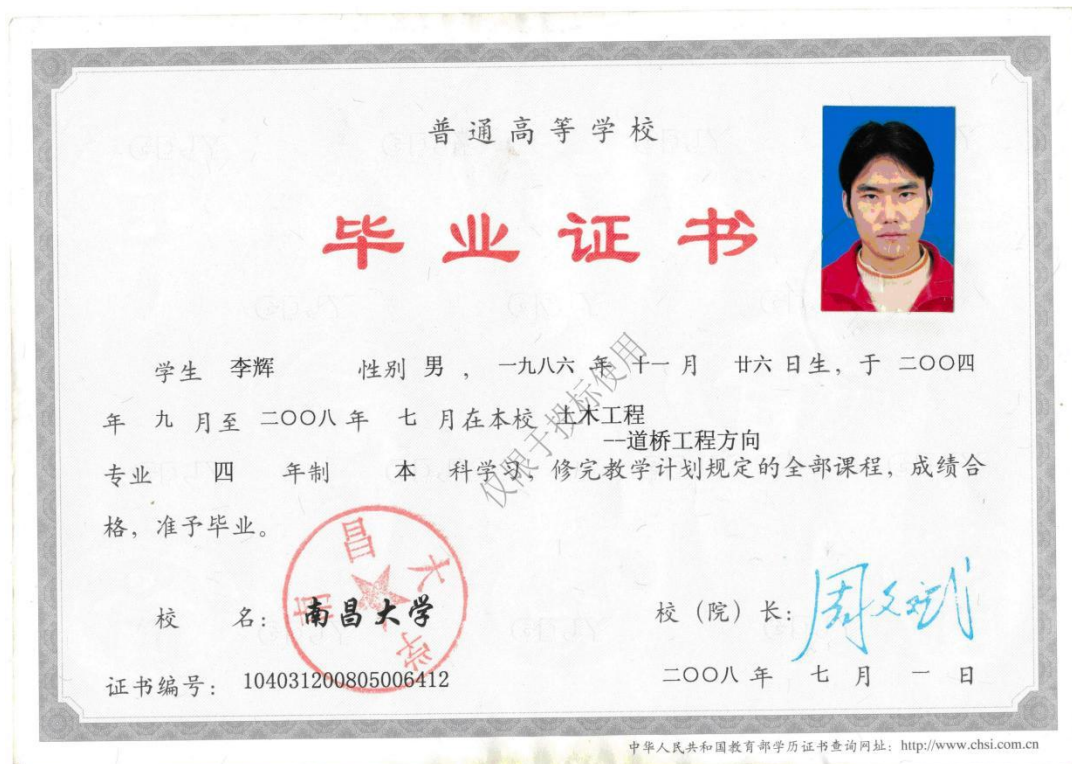 普通高等学校
毕业证书
学生 李辉 性别 男 ， 一九八六 年 十一 月 廿六 日生，于 二〇〇四
年 九 月至 二〇〇八 年 七 月在本校 土木工程
--道桥工程方向
专业 四 年制 本 科学习，修完教学计划规定的全部课程，成绩合
格，准予毕业。
仅限于投标使用
校 名： 南昌大学
南昌大学
校（院）长：周文斌
证书编号： 104031200805006412
二〇〇八 年 七 月 一 日
中华人民共和国教育部学历证书查询网址：http://www.chsi.com.cn